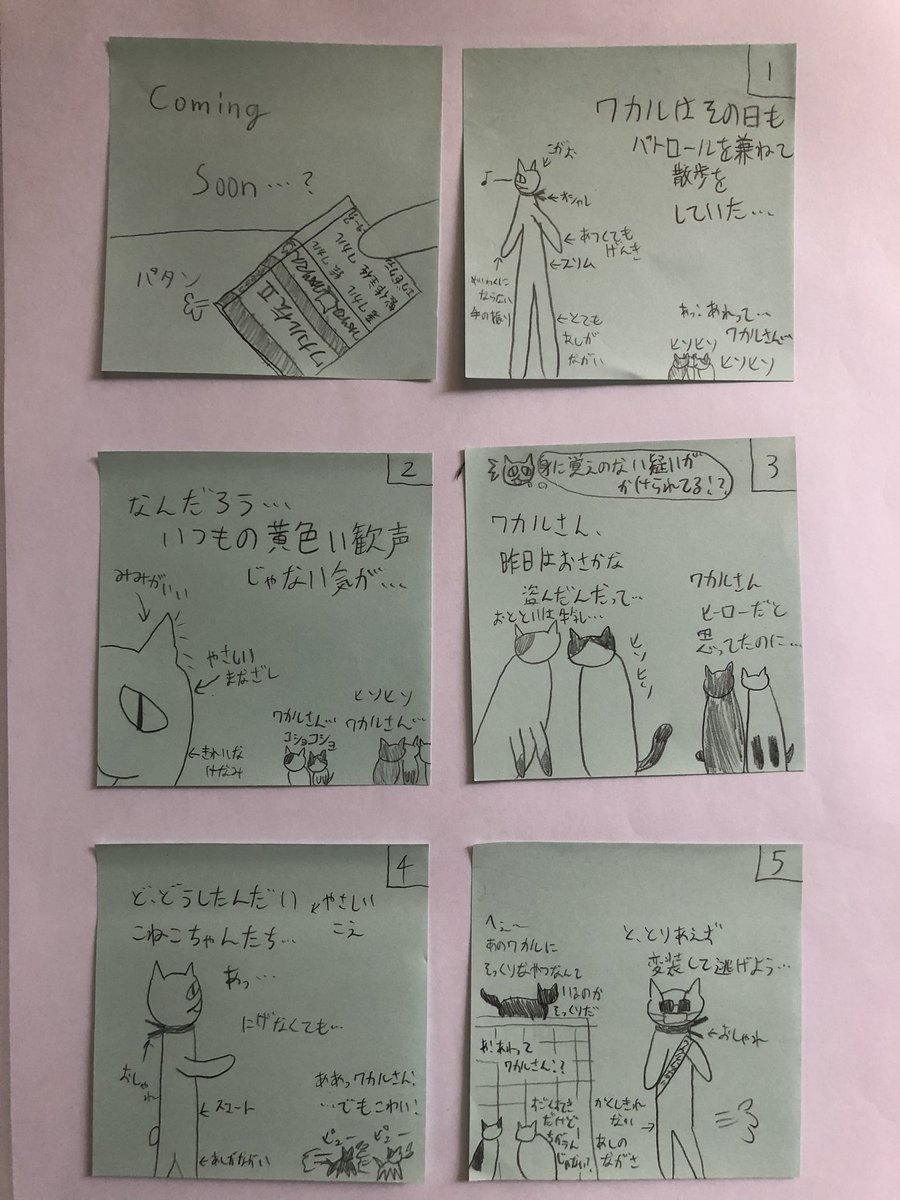 Coming
Soon…?
パタン
ワカル伝 II
1
ワカルはその日も
パトロールを兼ねて
散歩を
していた…
こがお
♪
オシャレ
あつくても
げんき
スリム
めいわくに
ならない
手の振り
とても
あしが
ながい
あっ…あれって…
ワカルさん…
ヒソヒソ
ヒソヒソ
2
なんだろう…
いつもの黄色い歓声
じゃない気が…
みみがいい
やさしい
まなざし
きれいな
けなみ
ワカルさん…
コショコショ
ヒソヒソ
ワカルさん…
3
身に覚えのない疑いが
かけられてる!?
ワカルさん、
昨日はおさかな
盗んだんだって…
おとといは牛乳…
ヒソヒソ
ワカルさん
ヒーローだと
思ってたのに…
4
ど、どうしたんだい
こねこちゃんたち…
やさしい
こえ
あっ…
にげなくても…
おしゃれ
スマート
あしがながい
ああっワカルさん!
…でもこわい!
ピュー
ピュー
5
へぇ〜
あのワカルに
そっくりなやつなんて
いるのか
そっくりだ
と、とりあえず
変装して逃げよう…
おしゃれ
あ!あれって
ワカルさん!?
かくしきれ
ない
あしの
ながさ